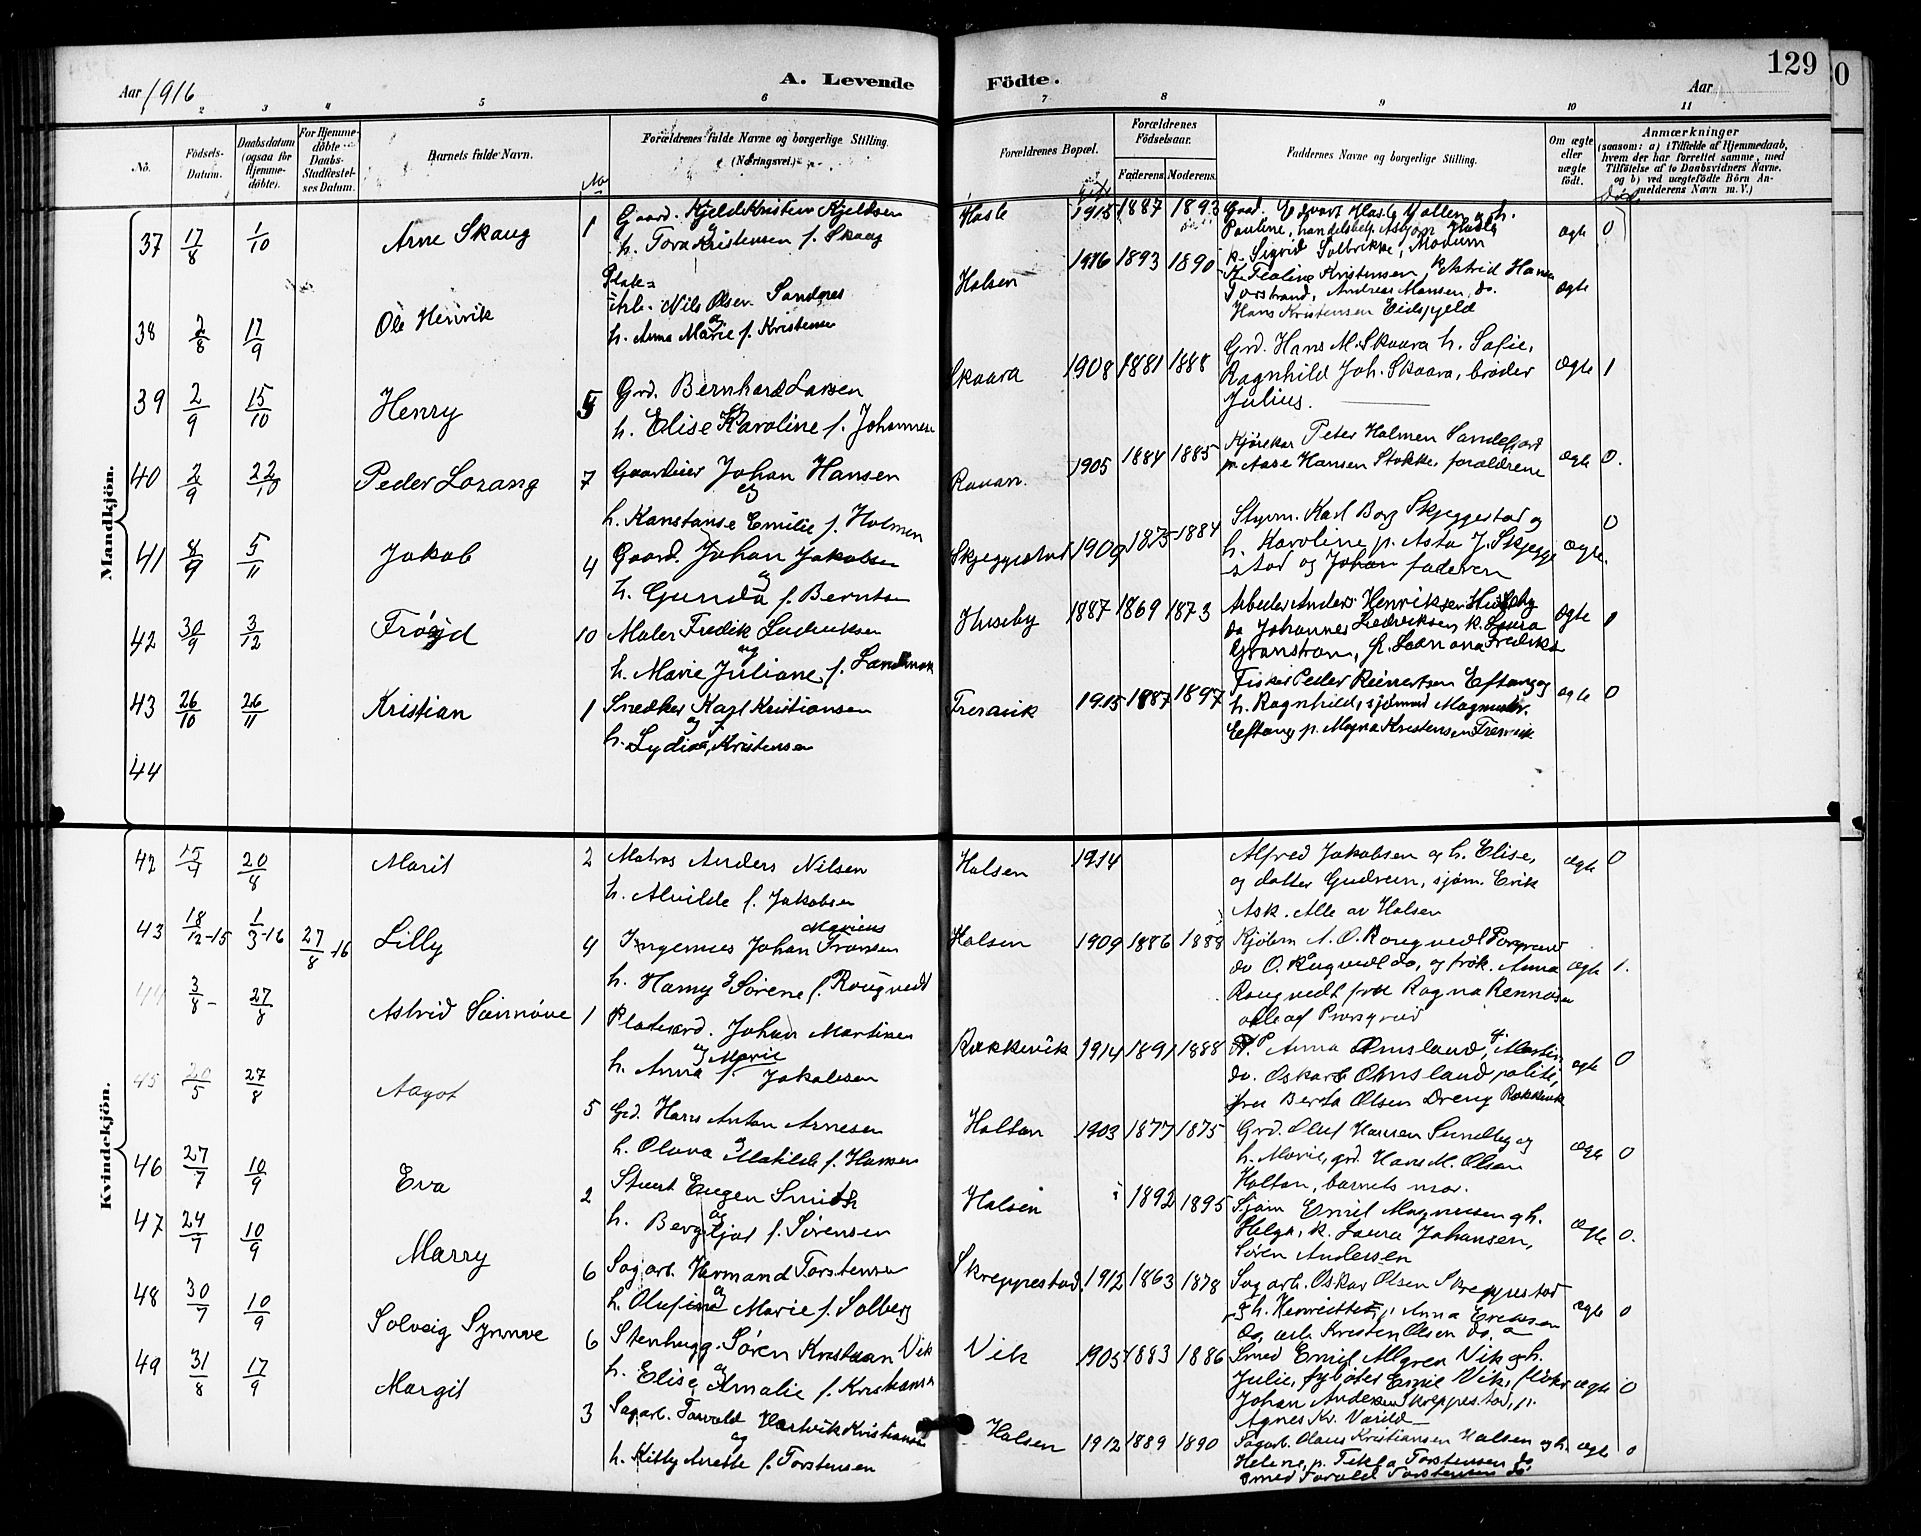 Aar 1916
A. Levende Födte.
129
Aar
0
2 3 4 5 6 7 8 9 10 11
No.
Födsels-Datum.
Daabsdatum (ogsaa for Hjemme-döbte).
For Hjemme-döbte Daabs-Stadfæstel-ses Datum.
Barnets fulde Navn.
No
Forældrenes fulde Navne og borgerlige Stilling.
(Næringsvei.)
Forældrenes Bopæl.
gift
Forældrenes Födselsaar.
Faderens. Moderens.
Faddernes Navne og borgerlige Stilling.
Om ægte eller uægte födt.
Anmærkninger
(saasom: a) i Tilfælde af Hjemmedaab, hvem der har forrettet samme, med Tilföielse af to Daabsvidners Navne, og b) ved uægtefödte Börn An-melderens Navn m. V.)
död.
Mandkjön.
37 17/8 1/10 Arne Skaug 1 Gaard. Kjeld Kristian Kjeldsen
og
h. Tora Kristensen f. Skaug
Hasle 1915 1887 1893 Gaard. Edvart Hasle Mollen og h.
Pauline, handelsbetj. Asbjørn Hasle
p. Sigrid Solbrække, Modum
ægte 0
38 2/8 17/9 Ole Henrik
Plate=
arb. Nils Olsen Sandnes
og
h. Anna Marie f. Kristensen
Halsen 1916 1893 1890 p. Teoline Kristensen, p. Astrid Hansen
Torstrand, Andreas Hansen, do.
Hans Kristensen Eidsfjeld
ægte
39 2/9 15/10 Henry 5 Grd. Bernhard Larsen
og
h. Elise Karoline f. Johannesen
Skaara 1908 1881 1888 Grd. Hans M. Skaara h. Sofie,
Ragnhild Joh. Skaara, broder
Julius.
ægte 1
40 2/9 22/10 Peder Lorang 7 Gaardeier Johan Hansen
og
h. Konstanse Emilie f. Holmen
Rauan. 1905 1884 1885 Kjørekar Peter Holmen Sandefjord
p. Aase Hansen Stokke, forældrene
ægte 0.
41 8/9 5/11 Jakob 4 Gaard. Johan Jakobsen
og
h. Gunda f. Berntsen
Skjeggestad 1909 1875 1884 Styrm. Karl Borg Skjeggestad og
h. Karoline p. Asta J. Skjegge
stad og Johan faderen
ægte. 0
42 30/9 3/12 Frøyd 10 Maler Fredik Ludviksen
og
h. Marie Juliane f. Landmark
Huseby 1887 1869 1873 Arbeder Anders Henriksen Huseby
do Johannes Fredriksen k. Laura
Granstrøm,
ægte 1
43 26/10 26/11 Kristian 1 Snedker Karl Kristiansen
og
h. Lydia f. Kristensen
Fresvik 1915 1887 1897 Fisker Peder Reinertsen Eftang og
h. Ragnhild, sjømand Magnus
Eftang p. Magna Kristensen Fresvik
ægte 0
44
Kvindekjön.
42 15/7 20/8 Marit 2 Matros Anders Nilsen
h. Alvilde f. Jakobsen
Halsen 1914 Alfred Jakobsen og h. Elise,
og datter Gudrun, sjøm. Erik
Ask. Alle av Halsen
ægte 0
43 18/12-15 1/3-16 27/8-16 Lilly 4
Marius
Ingeniør Johan Fransen
og
h. Hamy Sørene f. Rougvedt
Halsen 1909 1886 1888 Kjøbm A. O. Rougvedt Porsgrund
do O. Rougvedt do, og frøk. Anna
Rougvedt fru Ragna Rennåsen
alle af Porsgrund
ægte 1.
44 3/8- 27/8 Astrid Sønnøve 1 Platearb. Johan Martinsen
og Marie
h. Anna f. Jakobsen
Rakkevik 1914 1891 1888 P. Anna Omsland, g. Martin
do. Oskar Omsland politi,
fru Berta Olsen Dreng Rakkevik
ægte 0
45 20/5 27/8 Aagot 5 Grd. Hans Anton Arnesen
og
h. Olava Matilde f. Hansen
Holtan 1903 1877 1875 Grd. Oluf Hansen Sundby og
h. Marie, grd. Hans M. Olsen
Holtan, barnets mor.
ægte 0
46 27/7 10/9 Eva 2 Stuert Eugen Smith
og
h. Bergljot f. Sørensen
Halsen 1892 1895 Sjøm Emil Magnussen og h.
Helga, k. Laura Johansen,
Søren Andersen
ægte 0.
47 24/7 10/9 Marry 6 Sagarb. Hermand Torstensen
og
h. Olufine Marie f. Solberg
Skreppestad 1912 1863 1878 Sagarb. Oskar Olsen Skreppestad
og h. Henriette, p. Anna Eriksen
do, arb. Kristen Olsen do.
ægte 0
48 30/7 10/9 Solveig Synnøve 6 Stenhugg. Søren Kristian Vik
og
h. Elise Amalie f. Kristiansen
Vik 1905 1883 1886 Smed Emil Algren Vik og h.
Julie, fyrbøter Emil Vik, fisker
Johan Andersen Skreppestad, p.
Agnes Kr. Varild
ægte 0
49 31/8 17/9 Margit 3 Sagarb. Torvald Hartvik Kristiansen
og
h. Kitty Anette f. Torstensen
Halsen 1912 1889 1890 Sagarb. Olaus Kristiansen Halsen og h.
Helene, p. Tekla Torstensen do
smed Torvald Torstensen do
ægte 0